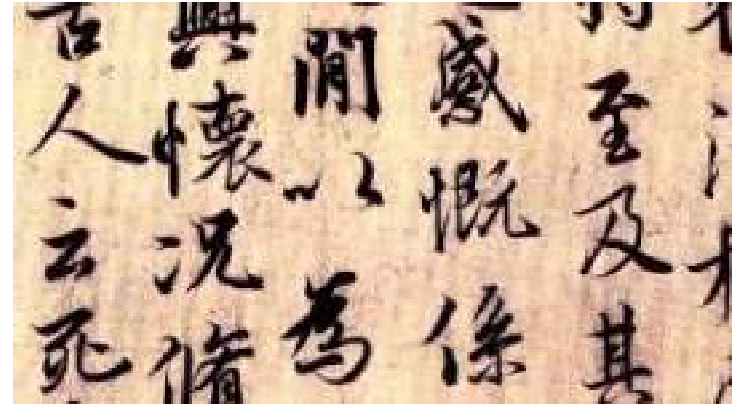 至及其
感慨係
閒以為
興懷况脩
古人云死